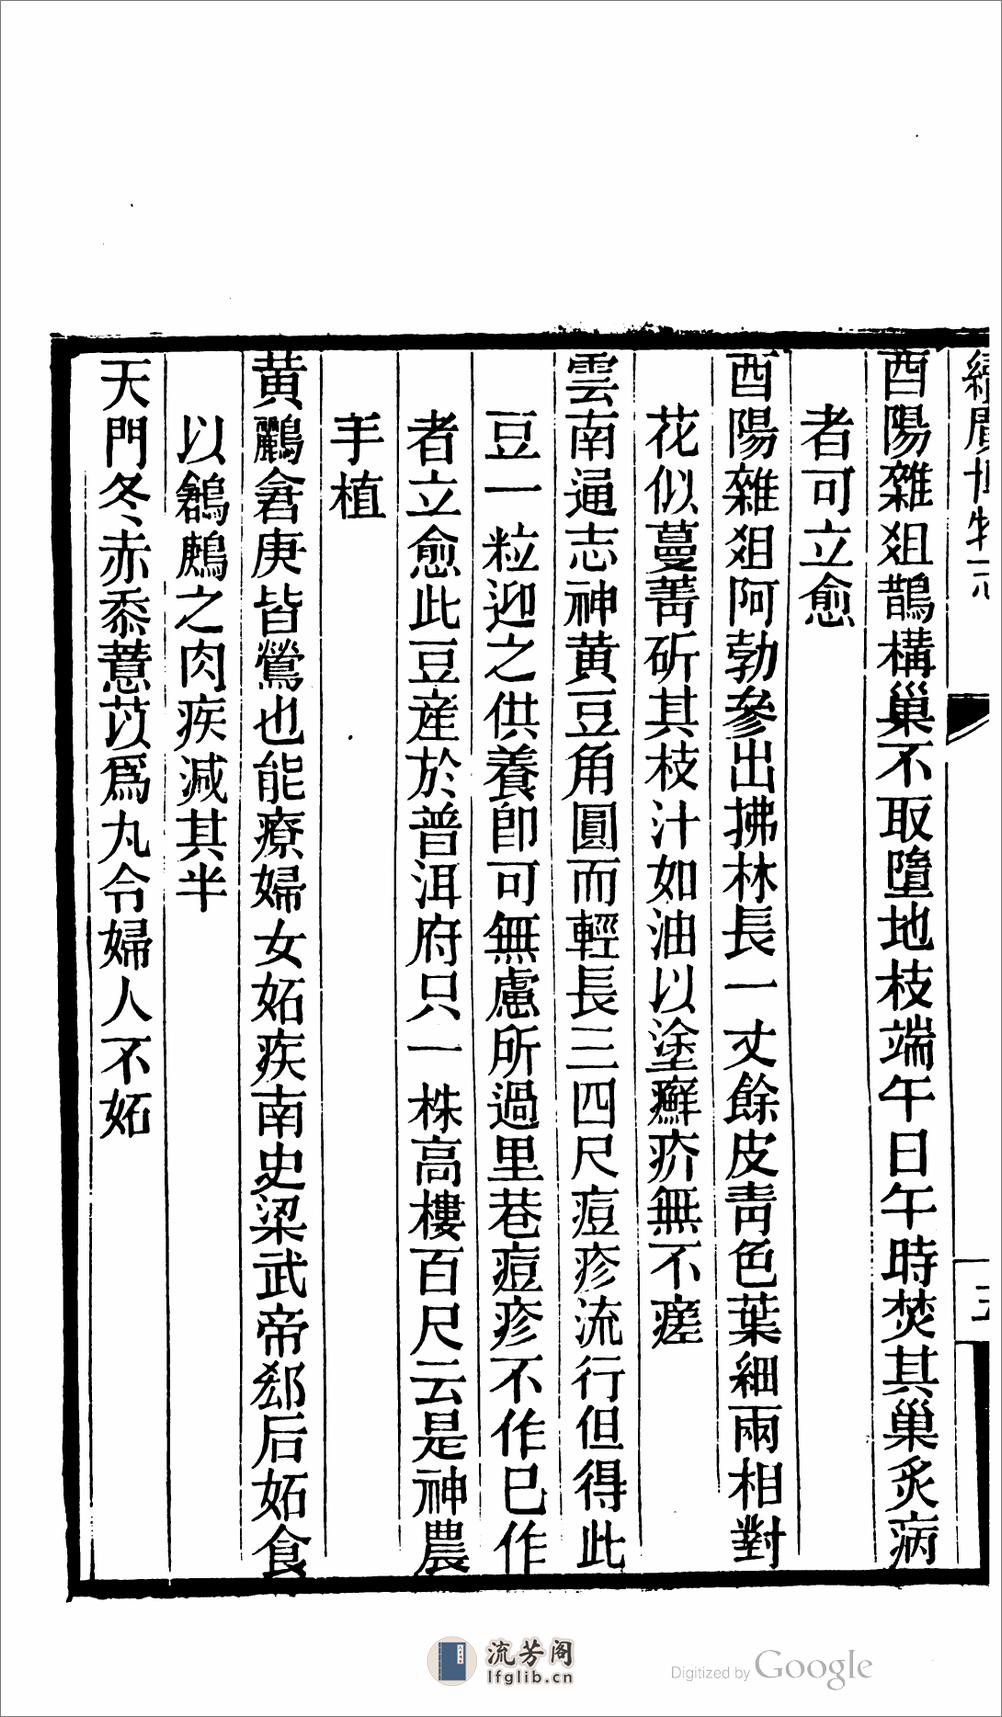 續廣博物志
酉陽雜俎鵲構巢不取墮地枝端午日午時焚其巢炙病
者可立愈
酉陽雜俎阿勃參出拂林長一丈餘皮靑色葉細兩相對
花似蔓菁斫其枝汁如油以塗癬疥無不瘥
雲南通志神黄豆角圓而輕長三四尺痘疹流行但得此
豆一粒迎之供養卽可無慮所過里巷痘疹不作已作
者立愈此豆産於普洱府只一株高樓百尺云是神農
手植
黄鸝倉庚皆鶯也能療婦女妬疾南史梁武帝郄后妬食
以鶬鷓之肉疾減其半
天門冬赤黍薏苡爲丸令婦人不妬
流芳阁
lfglib.cn
Digitized by Google